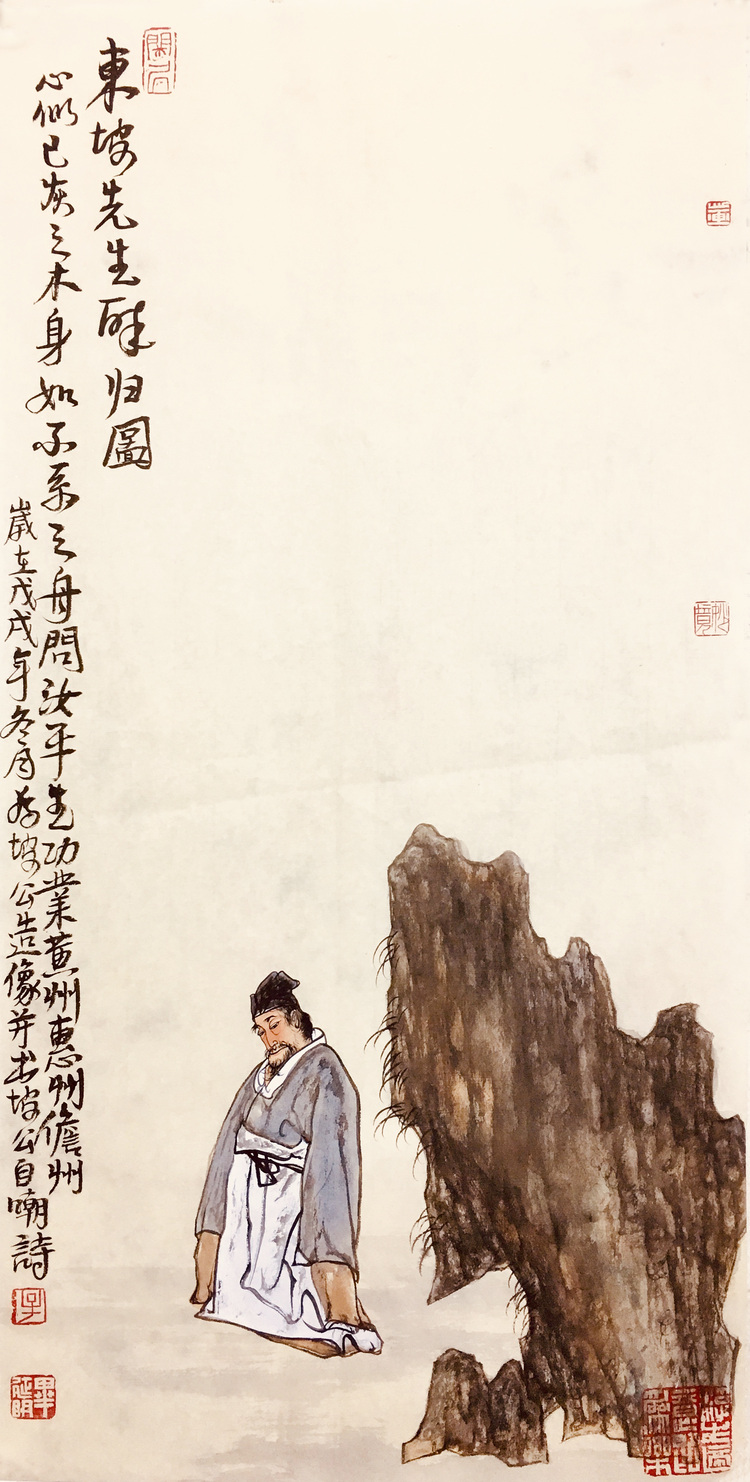 東坡先生醉归圖
心似已灰之木身如不系之舟問汝平生功業黄州惠州儋州
歲在戊戌年冬月為坡公造像并书坡公自嘲詩